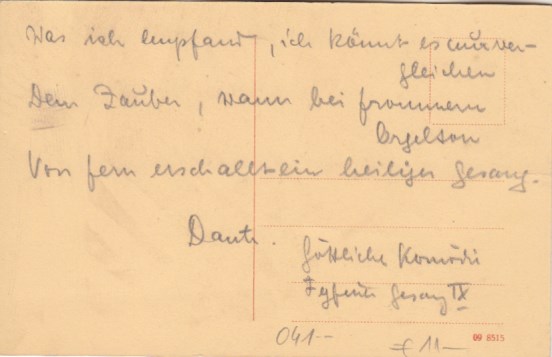 Was ich empfand, ich könnt es nur ver-
gleichen
Dem Zauber, wann bei frommem
Orgelton
Von fern erschallt ein heiliger Gesang.
Dante.
Göttliche Komödie
Gesang IX
041-- 
11--
09 8515